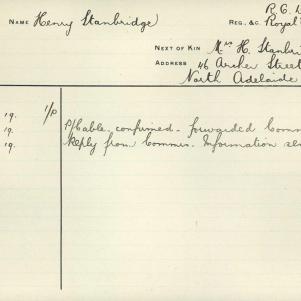 R.G.
NAME Henry Stanbridge REG. &C. Royal
NEXT OF KIN Mrs H. Stanbri
ADDRESS 46 Archer Street
North Adelaide
19. 1/P P/Cable confirmed - forwarded Comm
19. Reply from Commis. Information sen
19.